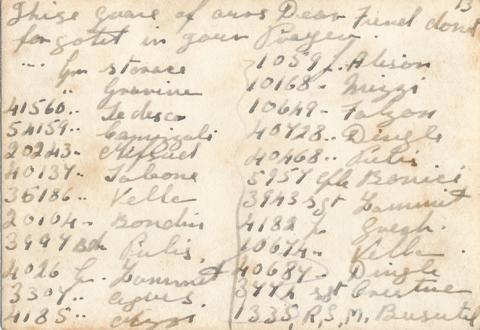 13
Thise guave of ours Dear Friend dont
forgotit in your Prayer.
" Gm storace
" Gravine
41560 .. Tedesco
54159 .. Camenzuli
20243 - Mifsud
40137 - Saleone
36186 .. Vella
20104 - Bondin
3997 Bdr Pulis.
4026 G. Zammit
3307 .. Agues.
4185 ..
1059 L. Alison
10168 - Mizzi
10649 - Falzon
40728 .. Dingle
40468 .. Pulis
5957 Cpl Bonici
3943 Sgt Zammit
4182 L Grech.
10674 - Vella.
40687 - Dingle
Sgt
1335, R.S.M. Busutil